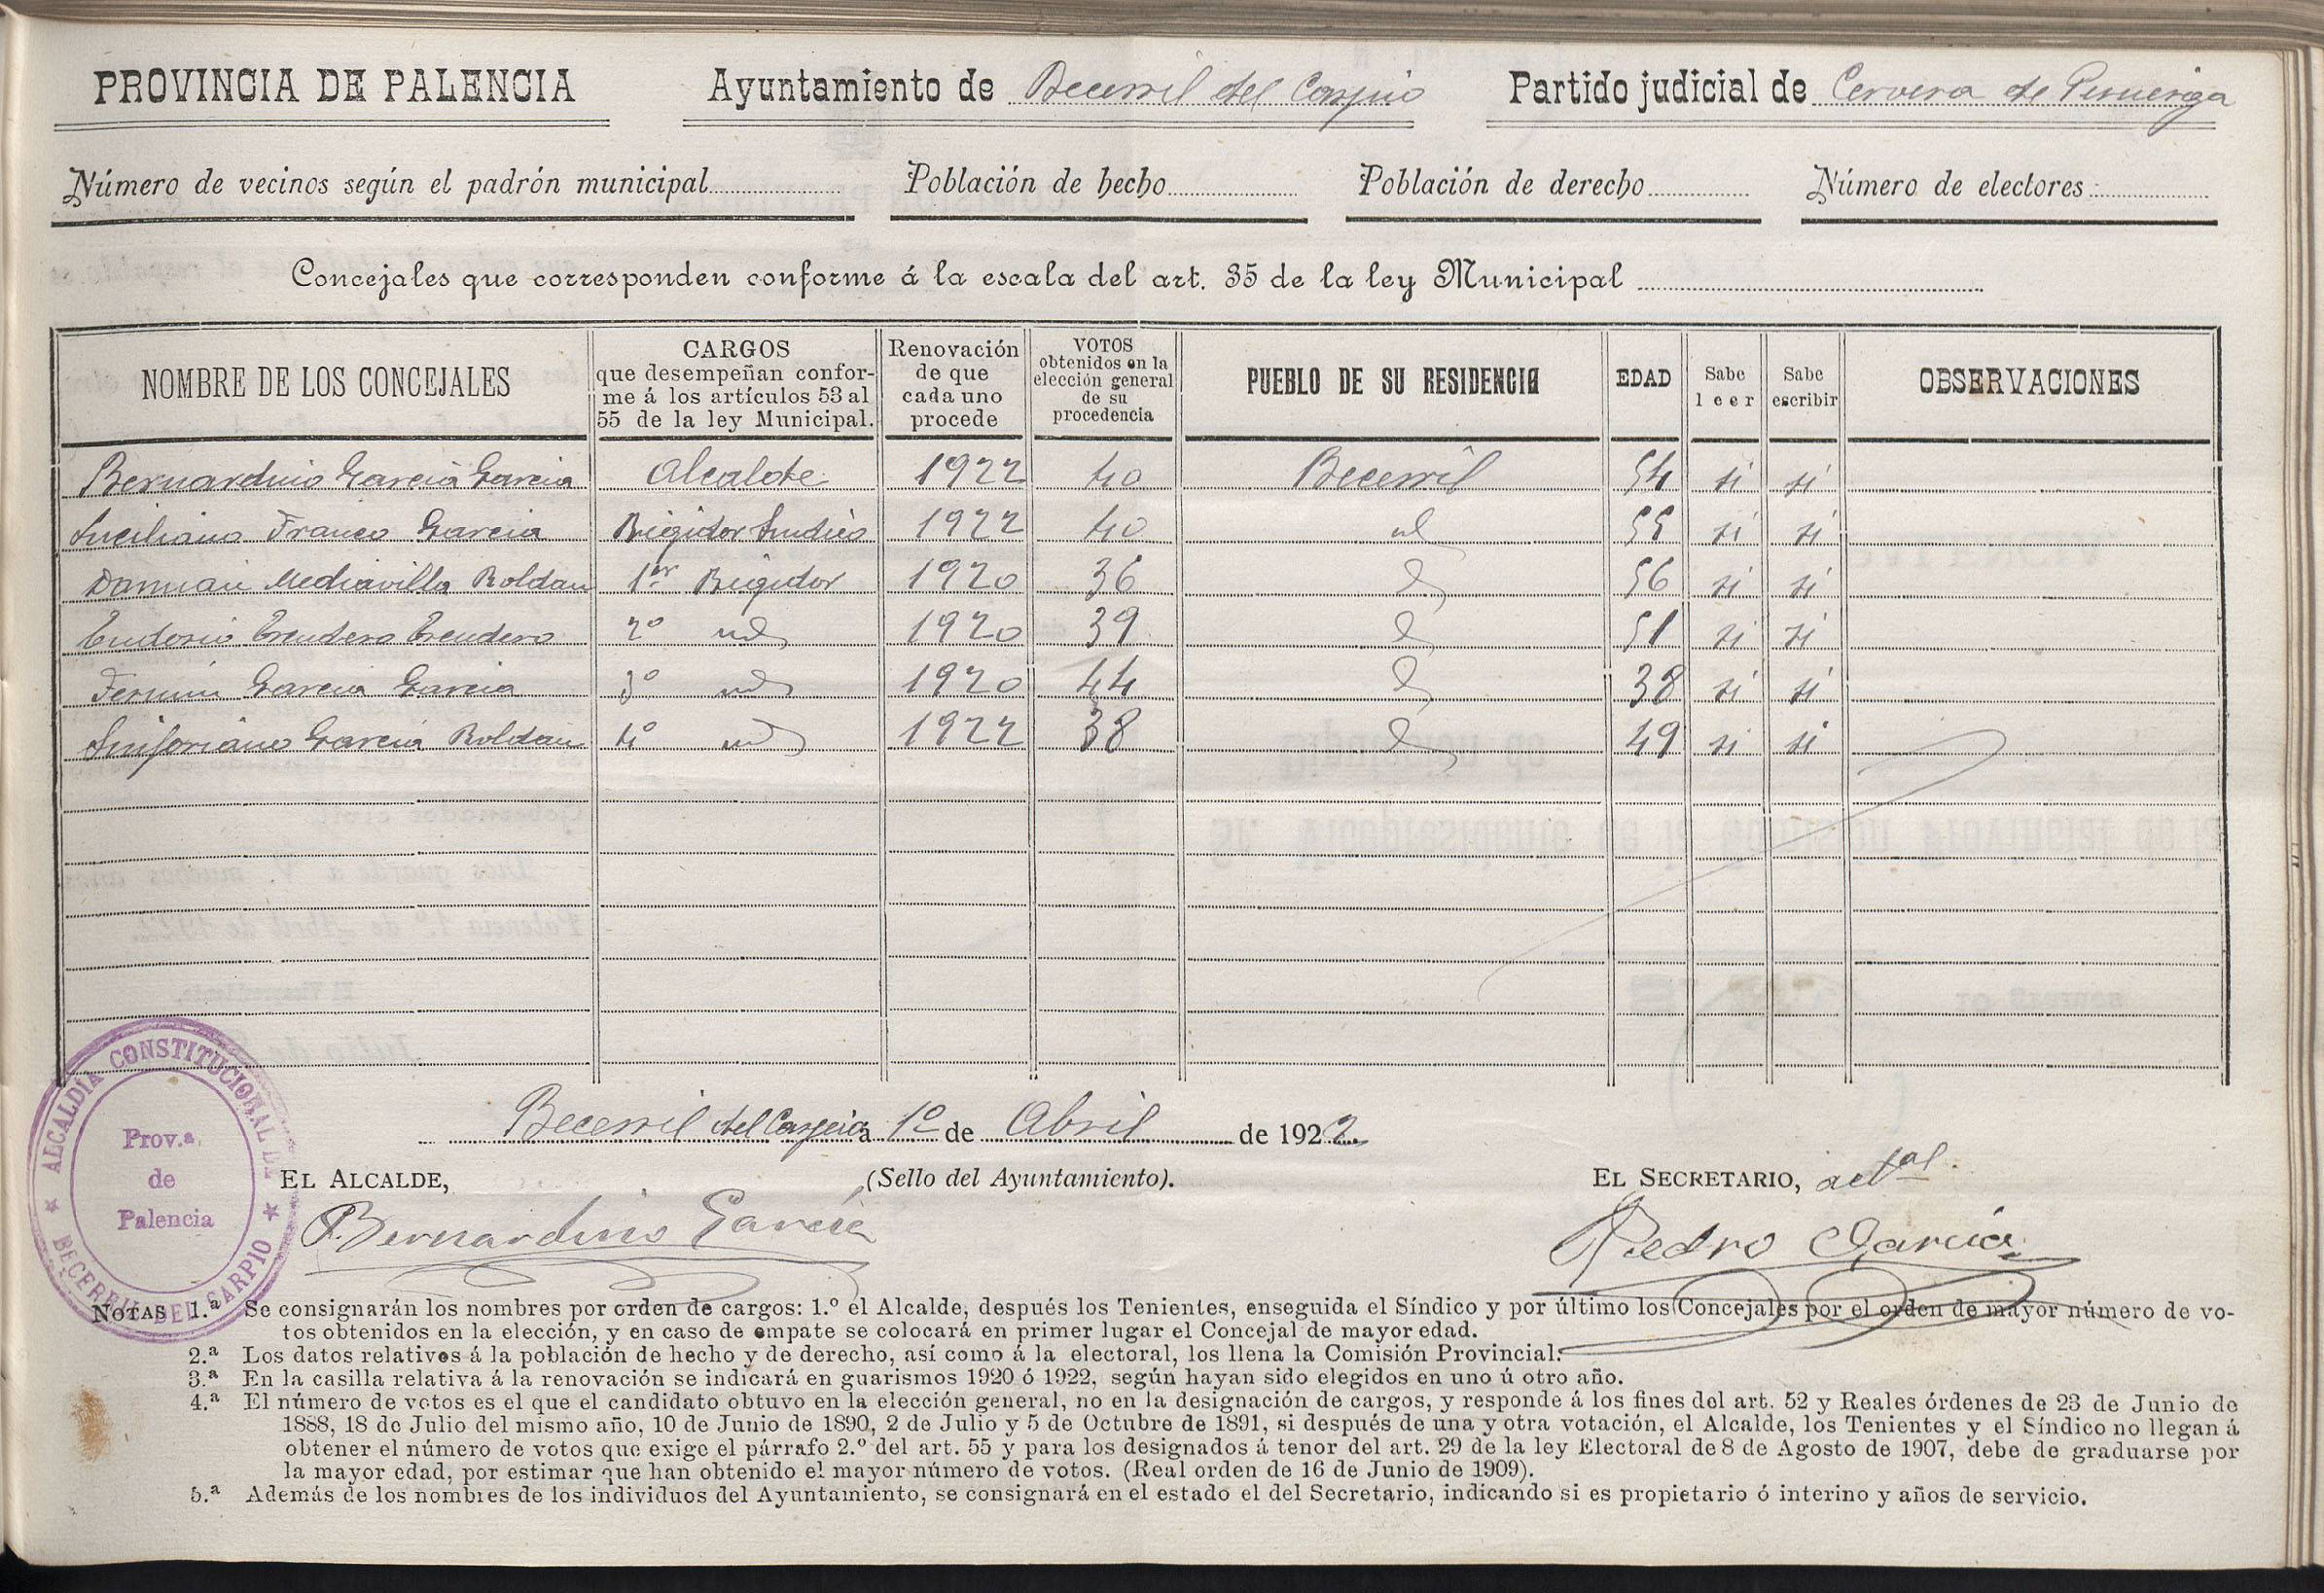 PROVINCIA DE PALENCIA Ayuntamiento de Becerril del Carpio Partido judicial de Cervera de Pisuerga
Número de vecinos según el padrón municipal Población de hecho Población de derecho Número de electores
Concejales que corresponden conforme á la escala del art. 35 de la ley Municipal
NOMBRE DE LOS CONCEJALES
CARGOS
que desempeñan confor-
me á los artículos 53 al
55 de la ley Municipal.
Renovación
de que
cada uno
procede
VOTOS
obtenidos en la
elección general
de su
procedencia
PUEBLO DE SU RESIDENCIA
EDAD
Sabe
leer
Sabe
escribir
OBSERVACIONES
Bernardino García García Alcalde 1922 40 Becerril 54 si si
Franco Garcia Regidor Sindico 1922 40 id 55 si si
Damian Mediavilla Roldan 1er Regidor 1920 36 56 si si
2º id 1920 39 51 si si
Fermin Garcia Garcia 3º id 1920 44 38 si si
Sinforiano Garcia Roldan 4º id 1922 38 49 si si
Becerril del Carpio á 1º de Abril de 1922.
EL ALCALDE, (Sello del Ayuntamiento). EL SECRETARIO, actal.
Bernardino García
Pedro García
ALCALDÍA CONSTITUCIONAL DE
BECERRIL DEL CARPIO
Prov.a
de
Palencia
NOTAS 1.ª Se consignarán los nombres por orden de cargos: 1.º el Alcalde, después los Tenientes, enseguida el Síndico y por último los Concejales por el orden de mayor número de vo-
tos obtenidos en la elección, y en caso de empate se colocará en primer lugar el Concejal de mayor edad.
2.ª Los datos relativos á la población de hecho y de derecho, así como á la electoral, los llena la Comisión Provincial.
3.ª En la casilla relativa á la renovación se indicará en guarismos 1920 ó 1922, según hayan sido elegidos en uno ú otro año.
4.ª El número de votos es el que el candidato obtuvo en la elección general, no en la designación de cargos, y responde á los fines del art. 52 y Reales órdenes de 23 de Junio de
1888, 18 de Julio del mismo año, 10 de Junio de 1890, 2 de Julio y 5 de Octubre de 1891, si después de una y otra votación, el Alcalde, los Tenientes y el Síndico no llegan á
obtener el número de votos que exige el párrafo 2.º del art. 55 y para los designados á tenor del art. 29 de la ley Electoral de 8 de Agosto de 1907, debe de graduarse por
la mayor edad, por estimar que han obtenido el mayor número de votos. (Real orden de 16 de Junio de 1909).
5.ª Además de los nombres de los individuos del Ayuntamiento, se consignará en el estado el del Secretario, indicando si es propietario ó interino y años de servicio.